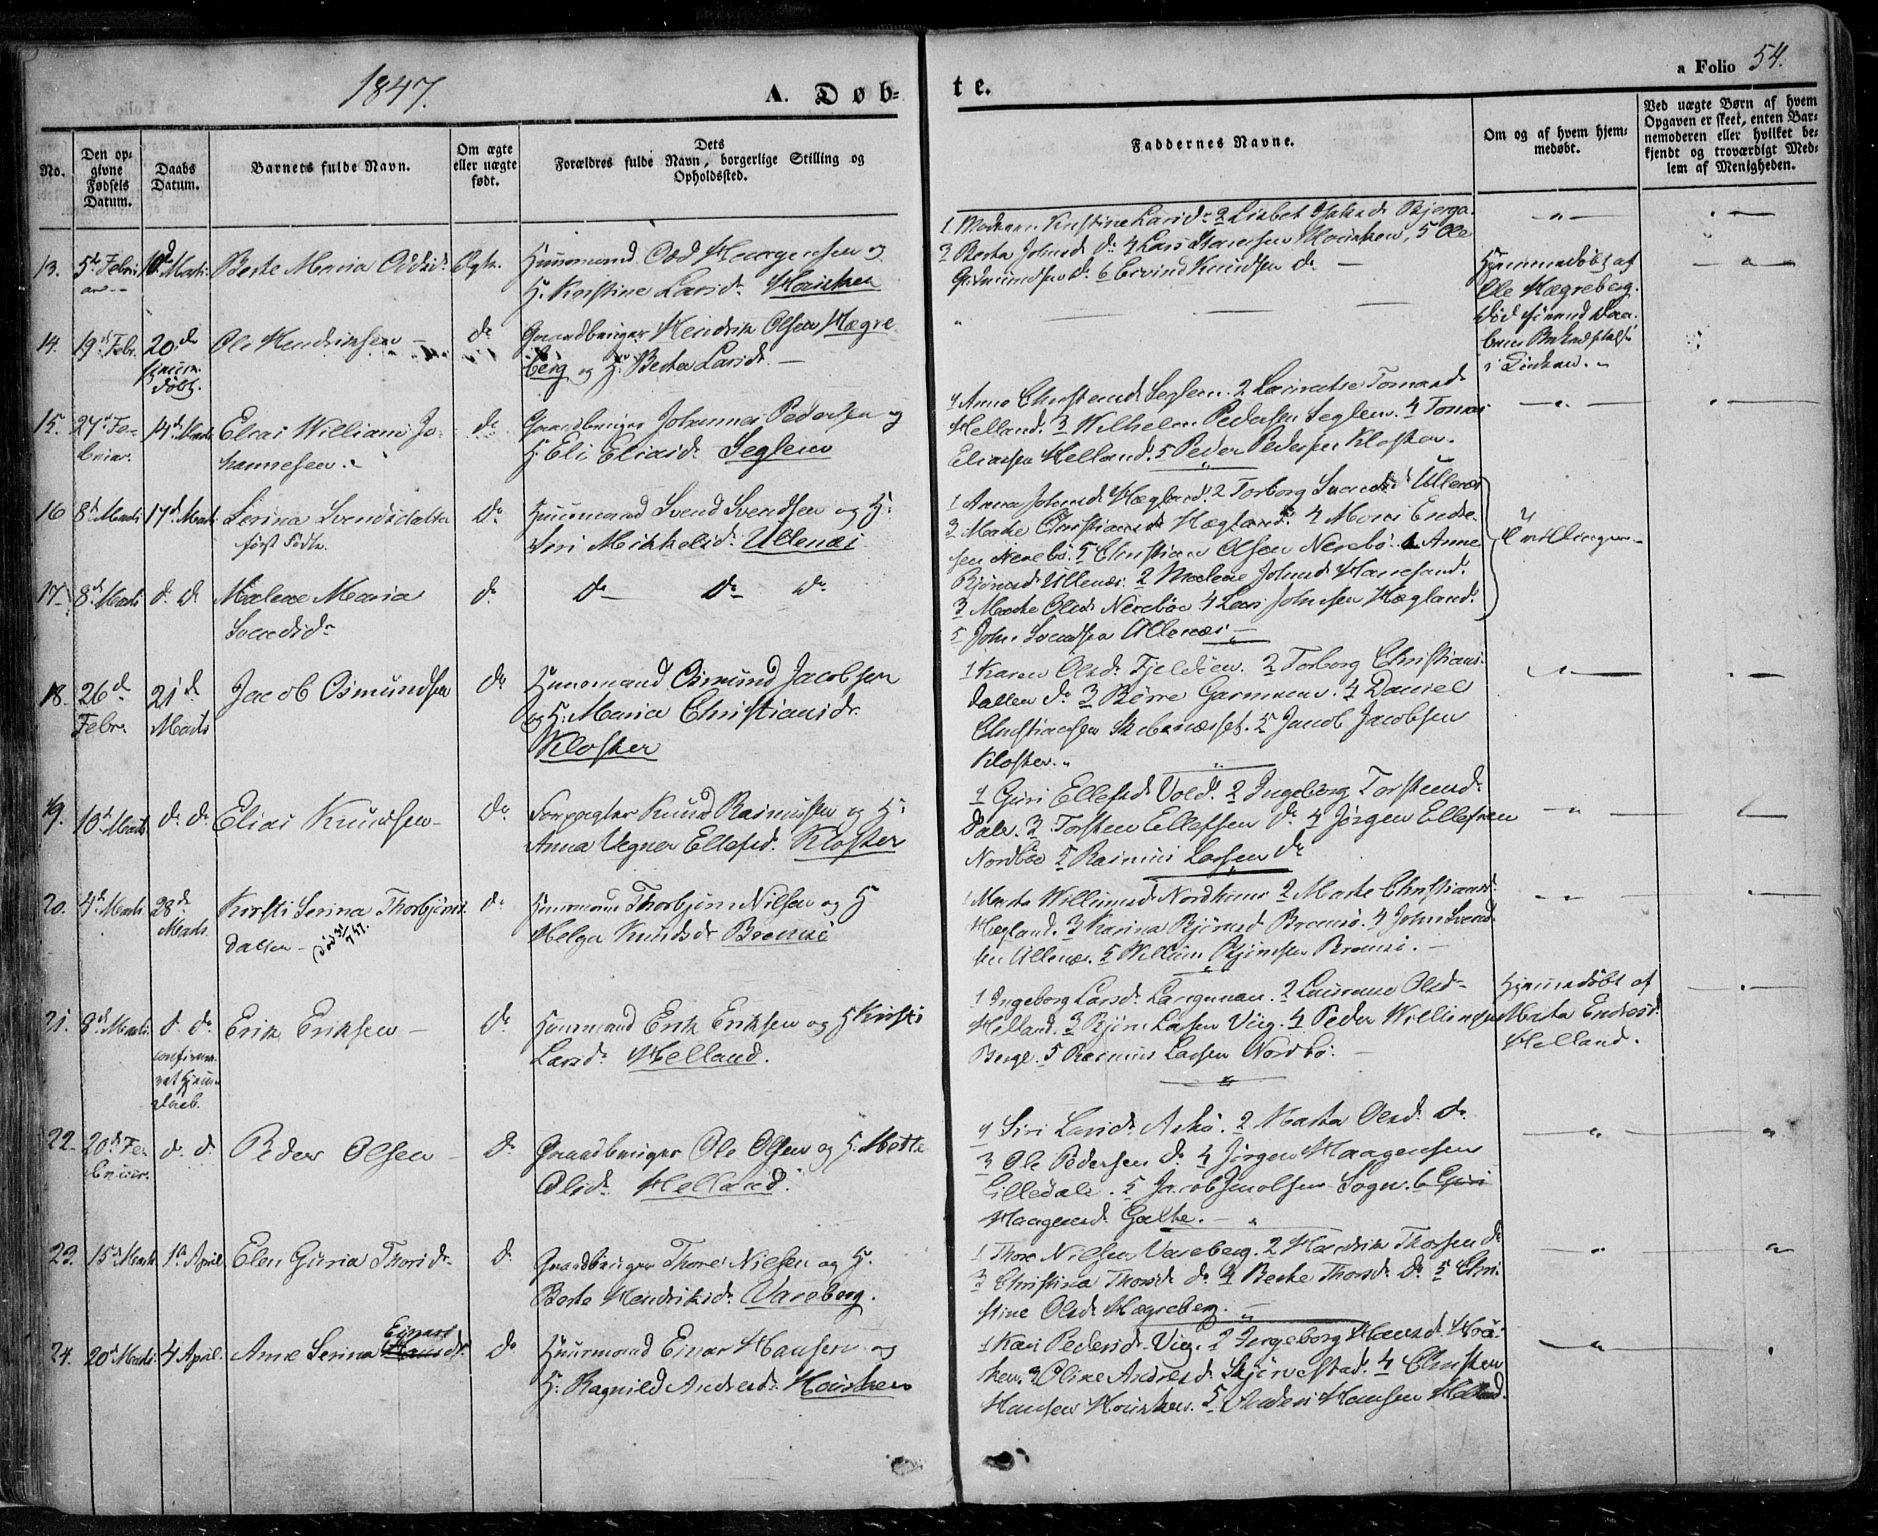 1847.
A. Døb-
te.
a Folio 54.
No.
Den op-
givne
Fødsels
Datum.
Daabs
Datum.
Barnets fulde Navn.
Om ægte
eller uægte
født.
Dets
Forældres fulde Navn, borgerlige Stilling og
Opholdssted.
Faddernes Navne.
Om og af hvem hjem-
medøbt.
Ved uægte Børn af hvem
Opgaven er skeet, enten Bar-
nemoderen eller hvilket be-
kjendt og troværdigt Med-
lem af Menigheden.
13. 5te Febru
ar
Marts
Berte Maria
Ægte
Huusmand Odd og
H. Kirstine Larsd. Housken
1 Kirstine Larsd. 2 Lisbet
3 Berta Johnsd. do 4 Lars Housken, 5 Ole
do 6 Eivind Knudsen do
Hjemmedøbt af
Ole Hægreberg.
Død
14. 19de Febr. 20de
hjem
døbt.
Ole Hendriksen
do
Gaardbruger Hendrik Olsen Hægre
berg og H. Berta Larsd.
15. 27de Fe
bruar. 14de Marts
Elias William Jo-
hannesen.
do
Gaardbruger Johannes Pedersen og
H. Eli Eliasd. Seglem
1 Anna Seglem. 2 Tomasd.
Helland. 3 Wilhelm Pedersen Seglem. 4 Tomas
Eliassen Helland. 5 Peder Pedersen Kloster.
16 8de Marts 17de Marts
Serina Svendsdatter
først Født.
do
Huusmand Svend Svendsen og H.
Siri Mikkelsd. Ullenæs
1 Anna Johnsd. Hægland. 2 Torborg Svendsd. Ullenæs
3 Marte Christiansd. Hægland. 4 Mons Endre-
sen Nerebø. 5 Christian Olsen Nerebø. 1 Anne
Bjørnsd. Ullenæs. 2 Malene Johnsd.
3 Marte Olsd. Nerebøe 4 Lars Johnsen Hægland.
5 John Svendsen Ullenæs
Tvillinger
17. 8de Marts d. d.
Malene Maria
Svendsd.
do
do do do
18. 26de
Febr. 21de
Marts
Jacob Osmundsen
do
Huusmand Osmund Jacobsen
og H. Maria Christiansdr.
Kloster
1 Karen Olsd. Fjeldøen. 2 Torborg Christians-
datter do 3 Børre 4 Daniel
Christiansen 5 Jacob Jacobsen
Kloster.
19. 10de Marts d. d.
Elias Knudsen
do
Forpagter Knud Rasmussen og H.
Anna Ellefsd. Kloster
1 Guri Ellefsd. Vold. 2 Ingeborg Torstensd.
Dale. 3 Torsten Ellefsen do 4 Jørgen Ellefsen
Nordbøe 5 Rasmus Larsen do
20. 4de Marts 28de
Marts.
Kirsti Serina Thorbjørns
datter
do
Huusmand Thorbjørn Nilsen og H
Helga Knudsdr Bremsø
1 Marta 2 Marte Christiansd.
Hægland. 3 Karina Bjørnsd. Bremsø. 4 John Svend-
sen Ullenæs. 5 Bjørnsen Bremsø.
21. 8de Marts. d. do
Erik Eriksen
do
Huusmand Erik Eriksen og H Kirsti
Larsd. Helland.
1 Ingeborg Larsd. 2 Laurense Olsd.
Helland. 3 Bjørn Larsen Viig. 4 Peder Williamsen
Berge. 5 Rasmus Larsen Nordbø.
Hjemmedøbt af
Marta Endresd.
Helland.
22. 20de Fe-
bruar. d. d.
Peder Olsen
do
Gaardbruger Ole Olsen og H. Mette
Olsd. Helland.
1 Siri Larsd. Askø. 2 Marta Olsd. do
3 Ole Pedersen do. 4 Jørgen Haagensen
Lilledale. 5 Sogn. 6 Guri
Haagensd. Galte.
23. 15de Marts 1ste April
Elen Guria Thorsdr.
do
Gaardbruger Thore Nilsen og H.
Berte Hendriksd. Vareberg.
1 Thore Nilsen Vareberg. 2 Hendrik Thorsen do
3 Christina Thorsd. do. 4 Berte Thorsd. do. 5 Chri-
stine Olsd. Hægreberg.
24. 20de Marts 4 April.
Anne Serina Einarsdr.
do
Huusmand Einar Hansen og
H. Ragnild Andersd. Housken
1 Kari Pedersd. Viig. 2 Ingeborg Hansd.
3 Oline Andersd. 4 Christen
Hansen Housken. 5 Anders Hansen Helland.